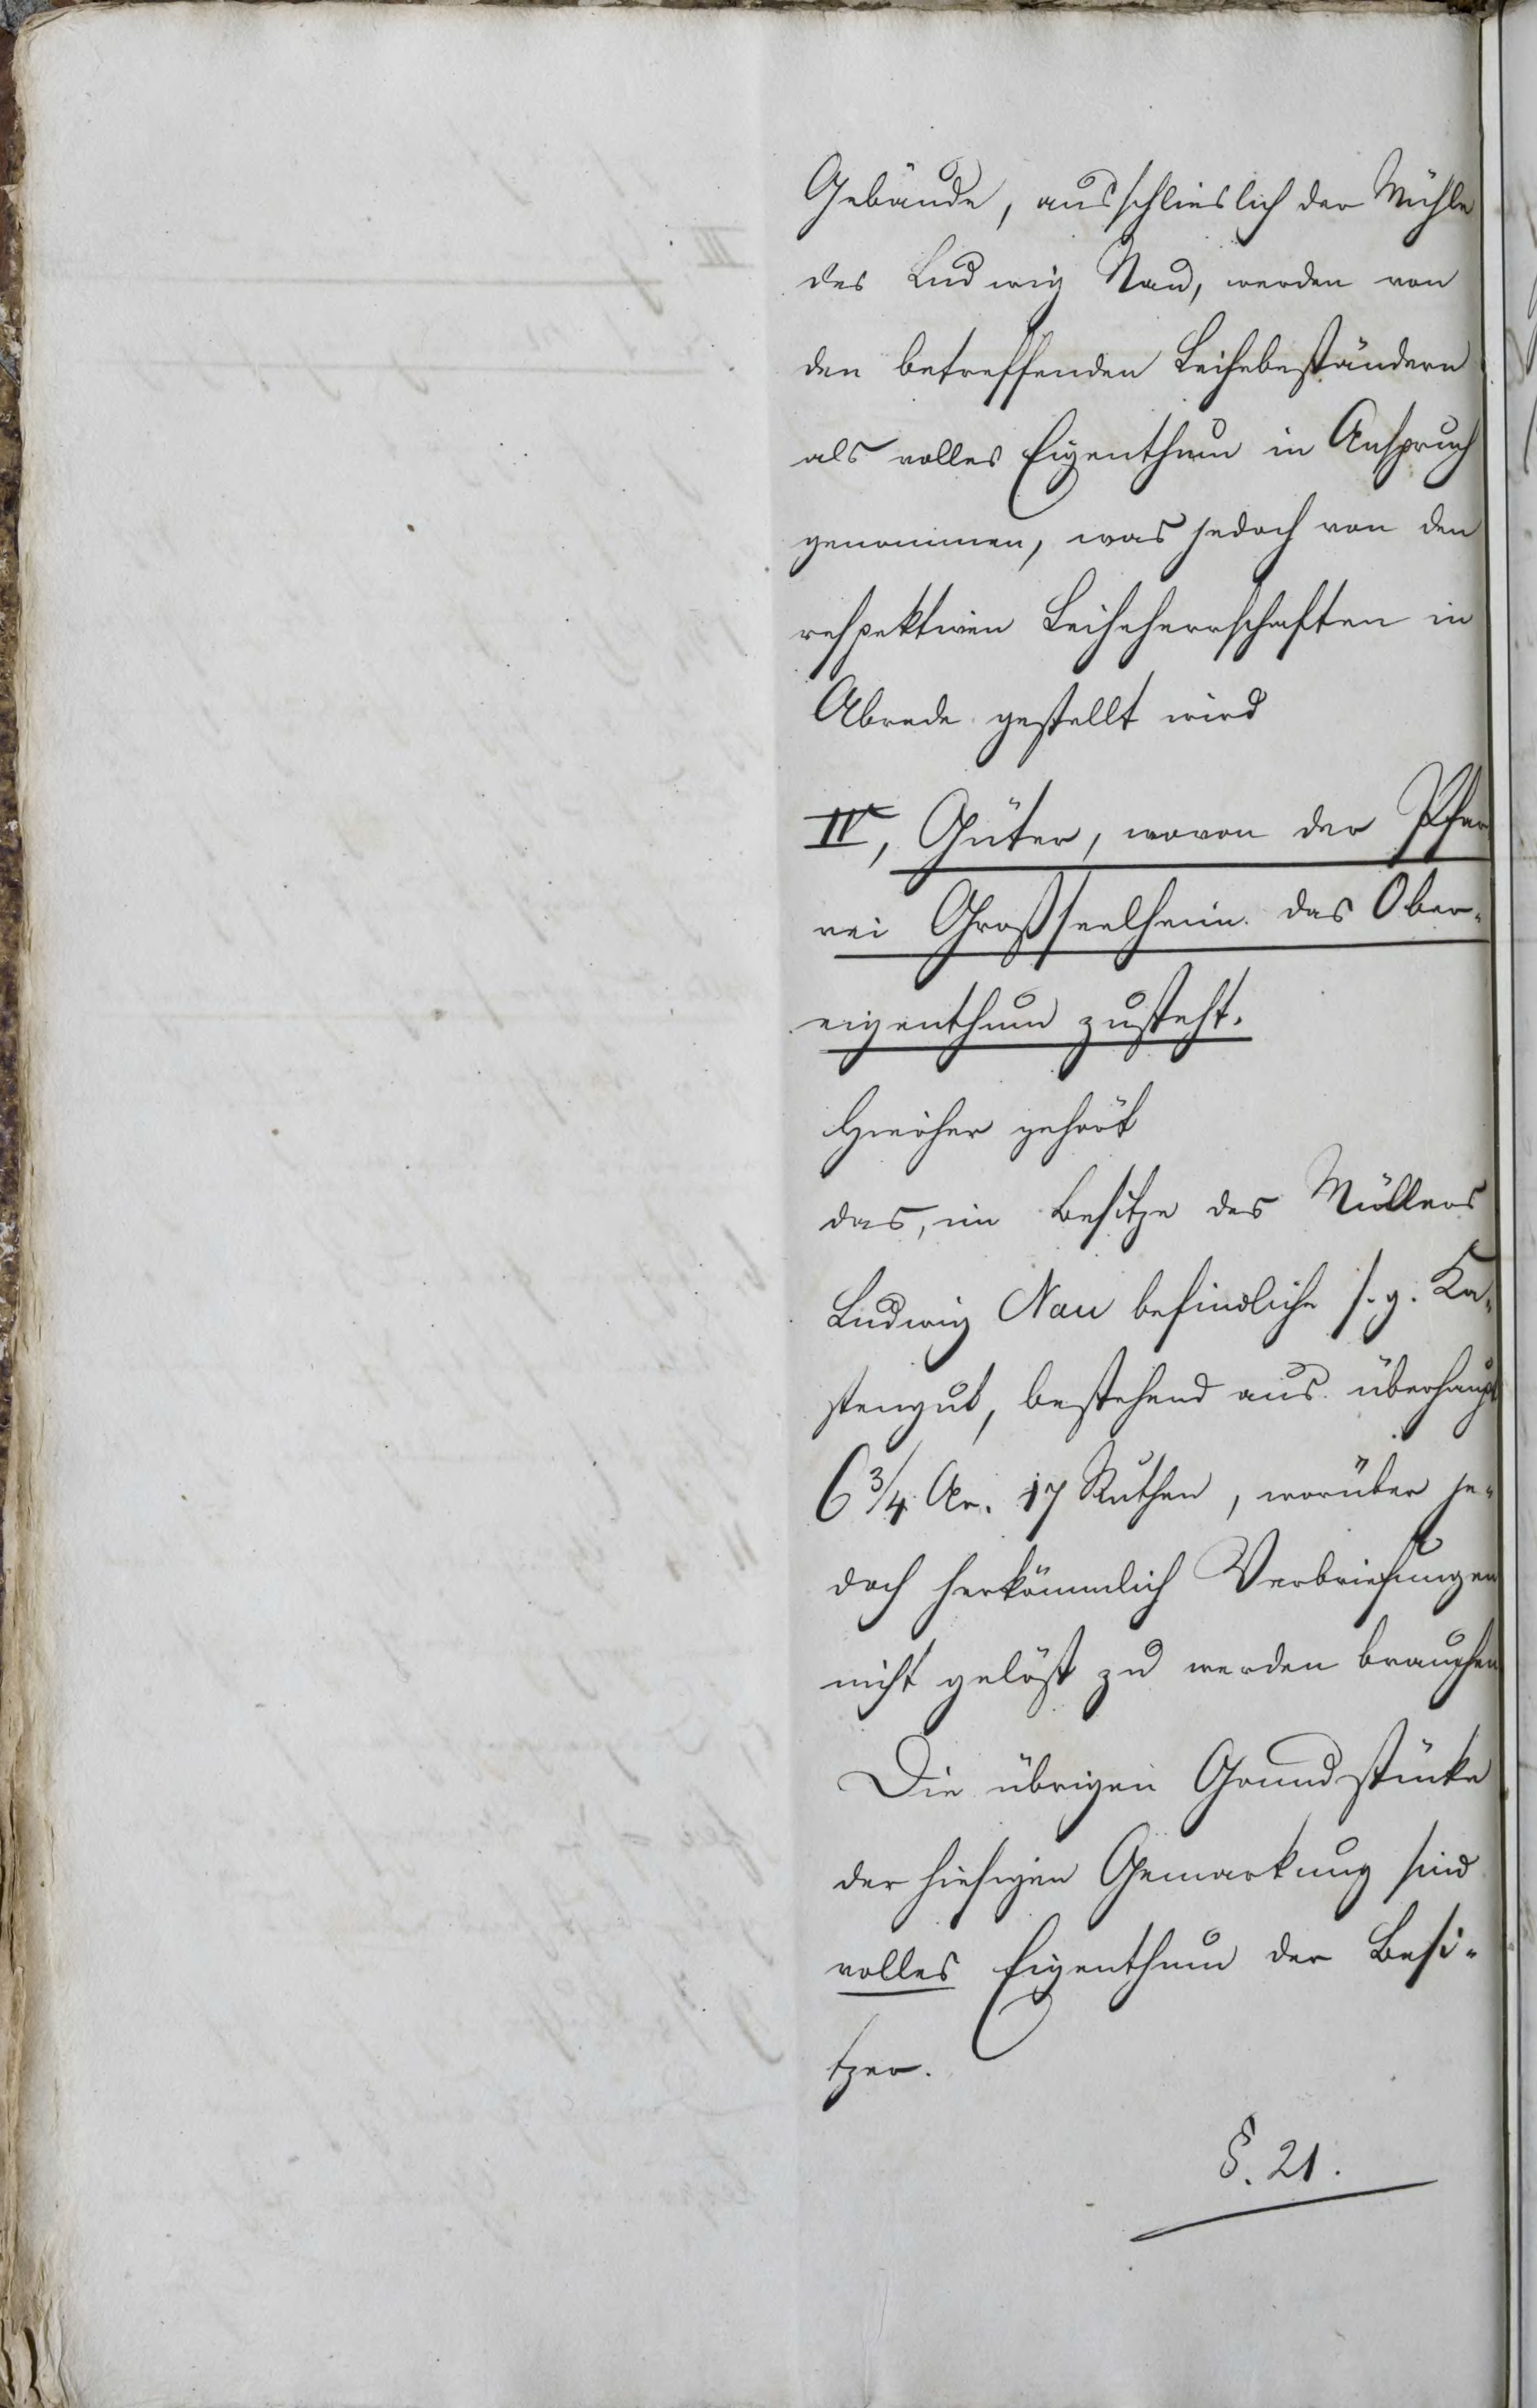 Gebäude, ausschlieslich der Mühle
des Ludwig Nau, werden von
den betreffenden Leihebeständern
als volles Eigenthum in Anspruch
genommen, was jedoch von den
respektiven Leiheherrschaften in
Abrede gestellt wird
IV, Güter, wovon der Pfar
rei Großseelheim das Ober-
eigenthum zusteht.
Hierher gehört
das, im Besitze des Müllers
Ludwig Nau befindliche s. g. Ka-
stengut, bestehend aus überhaupt
6 3/4 Ar. 17 Ruthen, worüber je-
doch herkömmlich Verbriefungen
nicht gelöst zu werden brauchen
Die übrigen Grundstücke
der hiesigen Gemarkung sind
volles Eigenthum der Besi-
tzer.
§. 21.